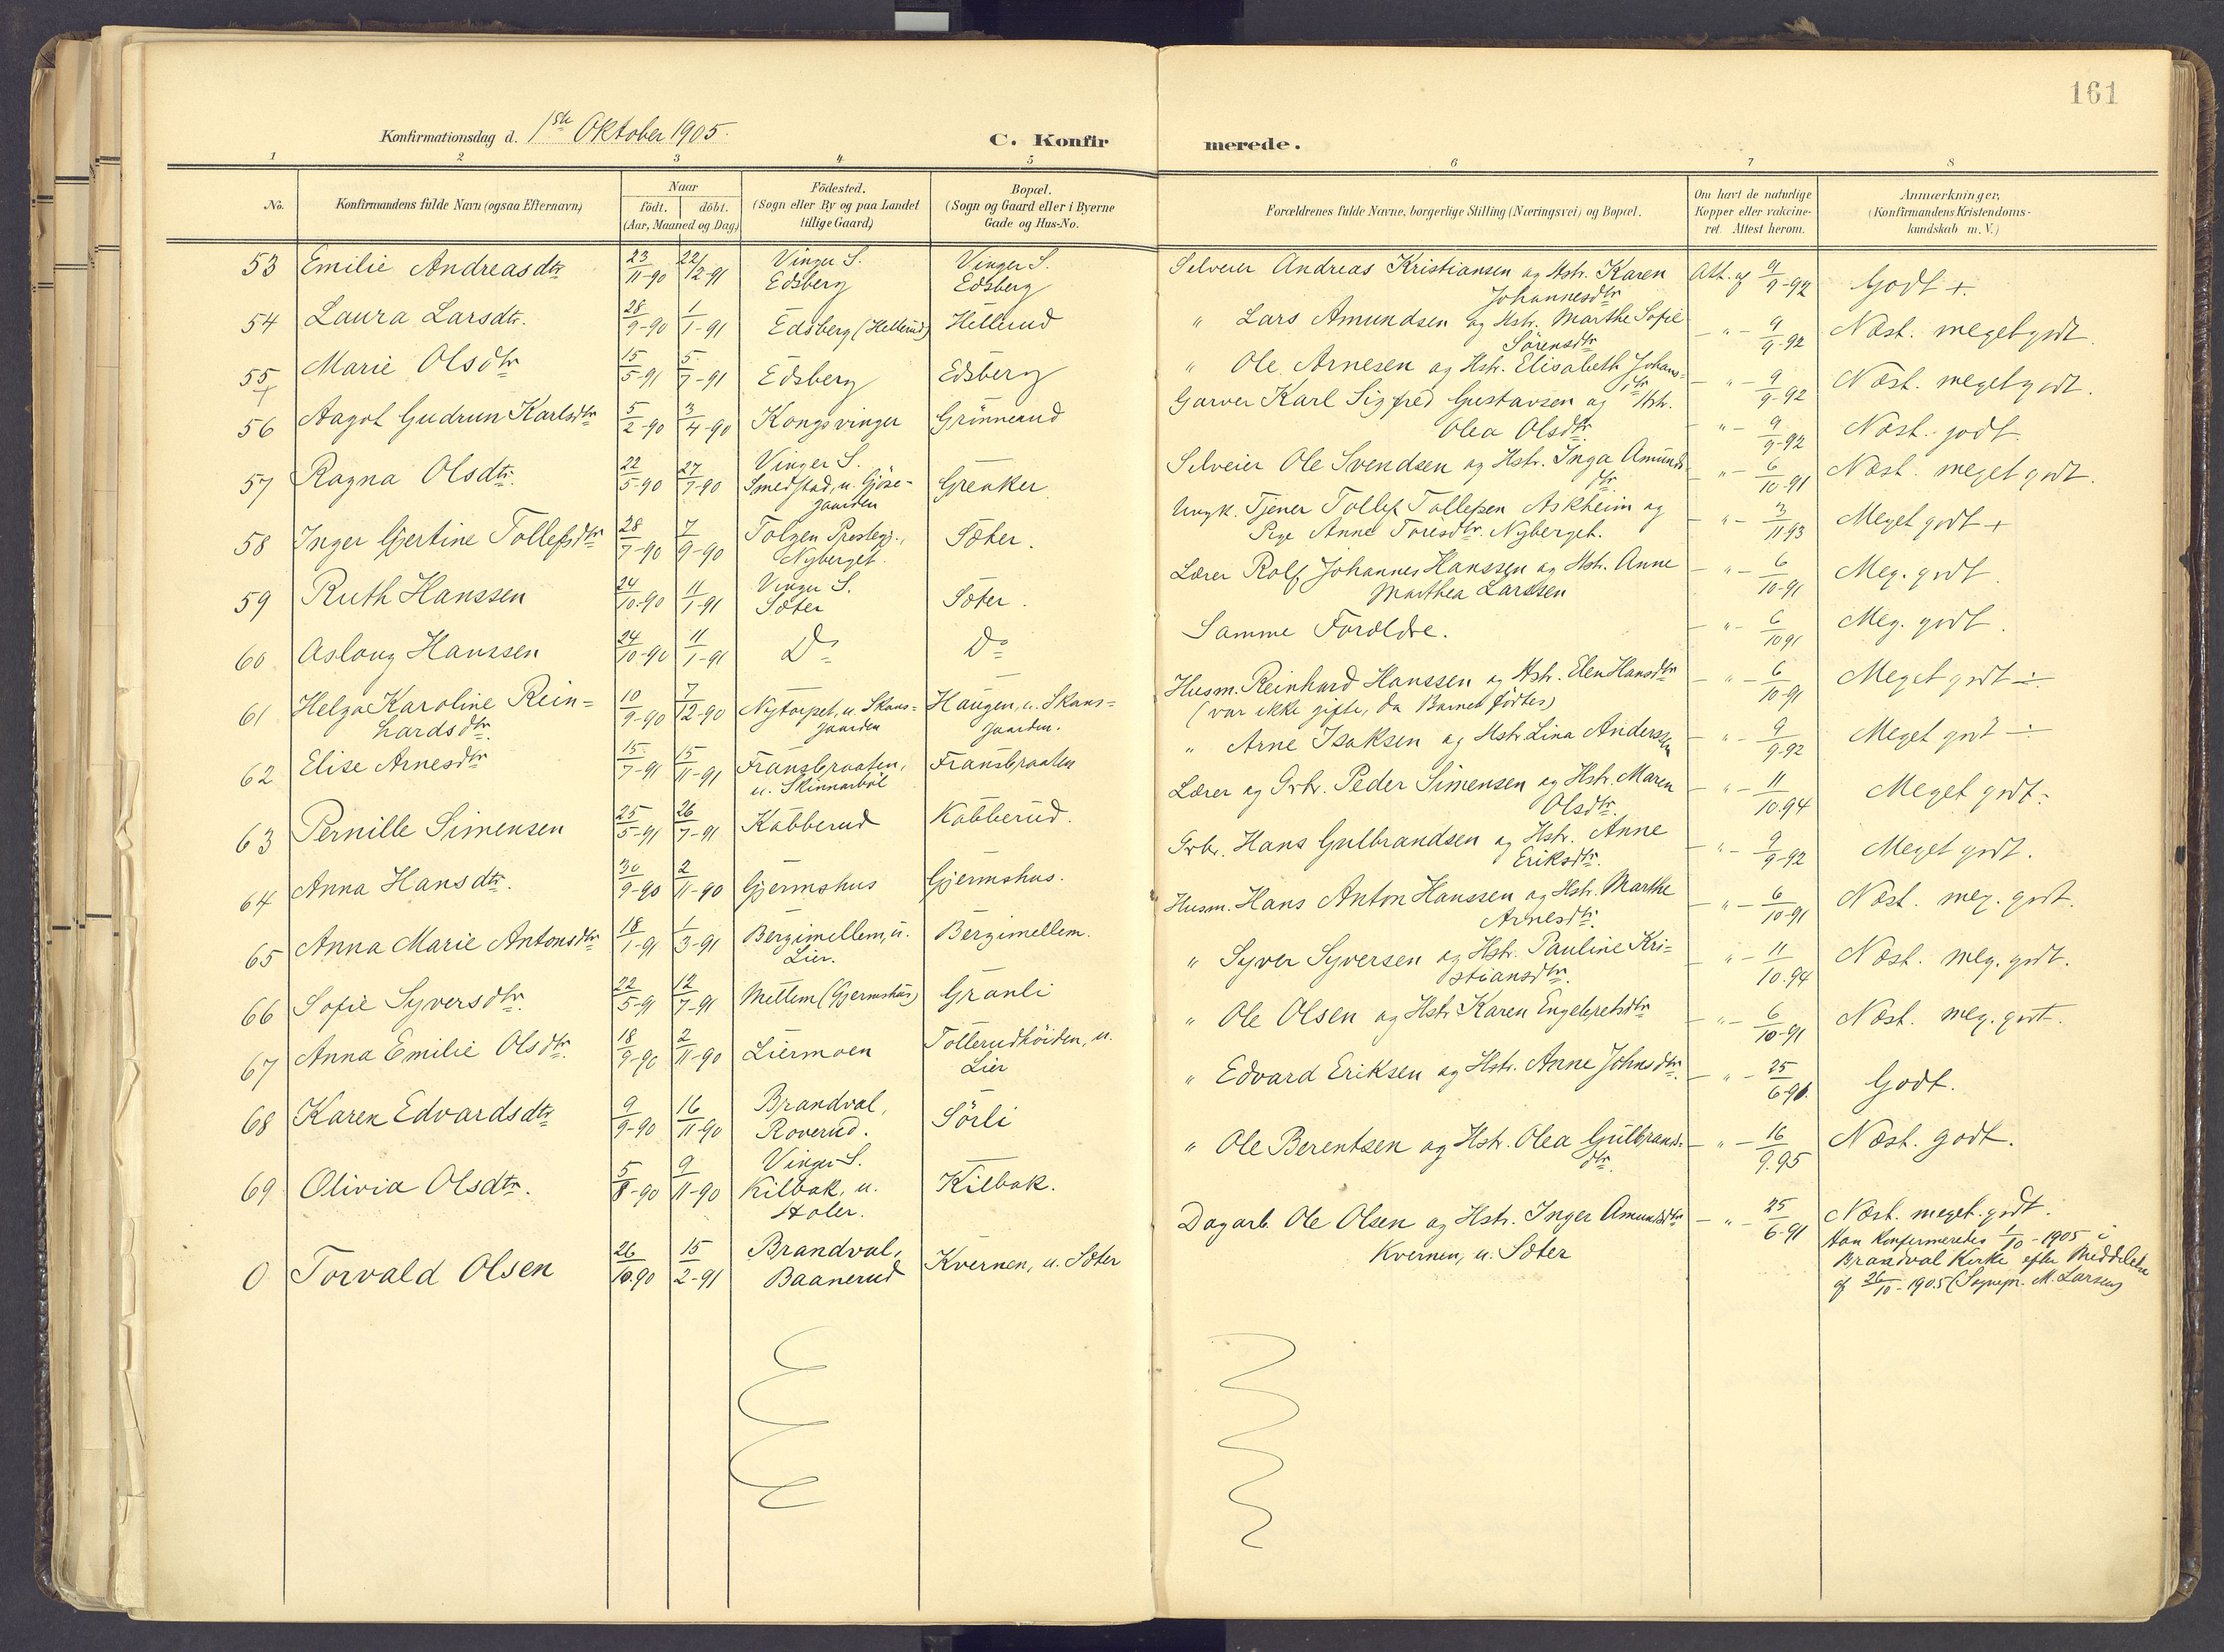 161
Konfirmationsdag d. 1ste Oktober 1905.
C. Konfirmerede.
1 2 3 4 5 6 7 8
No.
Konfirmandens fulde Navn (ogsaa Efternavn)
Naar
födt. döbt.
(Aar, Maaned og Dag)
Födested.
(Sogn eller By og paa Landet
tillige Gaard)
Bopæl.
(Sogn og Gaard eller i Byerne
Gade og Hus-No.
Forældrenes fulde Navne, borgerlige Stilling (Næringsvei) og Bopæl.
Om havt de naturlige
Kopper eller vakcine-
ret. Attest herom.
Anmærkninger.
(Konfirmandens Kristendoms-
kundskab m. V.)
53 Emilie Andreasdtr 23/11-90 22/12-91 Vinger S. Edsberg Vinger S. Edsberg Selveier Andreas Kristiansen og Hstr. Karen Johannesdtr Att. af 9/9-92 Godt +.
54 Laura Larsdtr. 28/9-90 1/1-91 Edsberg (Hellerud) Hellerud " Lars Amundsen og Hstr. Marthe Sofie Sörensdtr - " - 9/9-92 Næst. meget godt.
55 Marie Olsdtr 15/5-91 5/7-91 Edsberg Edsberg " Ole Arnesen og Hstr. Elisabeth Johansdtr - " - 9/9-92 Næst. meget godt.
56 Aagot Gudrun Karlsdtr 5/2-90 3/4-90 Kongsvinger Grönnerud Garver Karl Sigfred Gustavsen og Hstr. Olea Olsdtr. - " - 9/9-92 Næst. godt.
57 Ragna Olsdtr. 22/5-90 27/7-90 Vinger S. Smedstad, u. Gjöse-gaarden Greaker Selveier Ole Svendsen og Hstr. Inga Amunds-dtr. - " - 6/10-91 Næst. meget godt.
58 Inger Gjertine Tollefsdtr 28/7-90 7/9-90 Tolgen Prestegj., Nyberget. Sæter. Ungk. Tjener Tollef Tollefsen Askheim og Pige Anne Toresdtr. Nyberget. - " - 3/11 93 Meget godt +
59 Ruth Hanssen 24/10-90 11/1-91 Vinger S. Sæter Sæter. Lærer Rolf Johannes Hanssen og Hstr. Anne Marthea Larssen - " - 6/10-91 Meg. godt.
60 Aslaug Hanssen 24/10-90 11/1-91 Do Do Samme Forældre. - " - 6/10 91 Meg. godt.
61 Helga Karoline Rein=hardsdtr. 10/9-90 7/12-90 Nytorpet, u. Skans=gaarden Haugen, u. Skans=gaarden. Husm. Reinhard Hanssen og Hstr. Elen Hansdtr (var ikke gifte, da Barnet födtes) - " - 6/10-91 Meget godt ÷
62 Elise Arnesdtr 15/7-91 15/11-91 Fransbraaten, u. Skinnarböl Fransbraaten " Arne Isaksen og Hstr Lina Anderssen - " - 9/9-92 Meget godt ÷
63 Pernille Simensen 25/5-91 26/7-91 Kabberud Kabberud. Lærer og Grbr. Peder Simensen og Hstr. Maren Olsdtr. - " - 11/10.94 Meget godt.
64 Anna Hansdtr. 30/9-90 2/11-90 Gjermshus Gjermshus. Grbr. Hans Gulbrandsen og Hstr. Anne Eriksdtr. - " - 9/9-92 Meget godt.
65 Anna Marie Antonsdtr 18/1-91 1/3-91 Bergimellem, u. Lier. Bergimellem. Husm. Hans Anton Hanssen og Hstr. Marthe Arnesdtr. - " - 6/10-91 Næst. meg. godt.
66 Sofie Syversdtr. 22/5-91 12/7-91 Mellem (Gjermshus) Granli " Syver Syversen og Hstr. Pauline Kri=stiansdtr. - " - 11/10.94 Næst. meg. godt.
67 Anna Emilie Olsdtr. 18/9-90 2/11-90 Liermoen Tollerudhöiden, u. Lier " Ole Olsen og Hstr Karen Engebretsdtr - " - 6/10-91 Næst. meg. godt.
68 Karen Edvardsdtr 9/9-90 16/11-90 Brandval, Roverud. Sörli " Edvard Eriksen og Hstr. Anne Johnsdtr. - " - 25/6-91. Godt.
69 Olivia Olsdtr. 5/8-90 9/11-90 Vinger S. Kilbak, u. Holer. Kilbak. " Ole Berentsen og Hstr. Olea Gulbrands-dtr. - " - 16/9.95 Næst. godt.
0 Torvald Olsen 26/10.90 15/2-91 Brandval, Baanerud Kvernen, u. Sæter Dagarb. Ole Olsen og Hstr. Inger Amundsdtr Kvernen, u. Sæter - " - 25/6-91 Næst. meget godt.
Han konfirmeredes 1/10-1905 i
Brandval Kirke efter Meddelelse
af 26/10-1905 (Sognepr. M. Larsen)